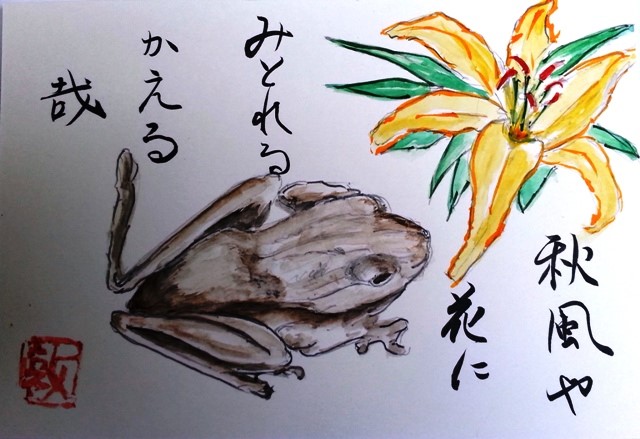 秋風や
花に
みとれる
かえる
哉